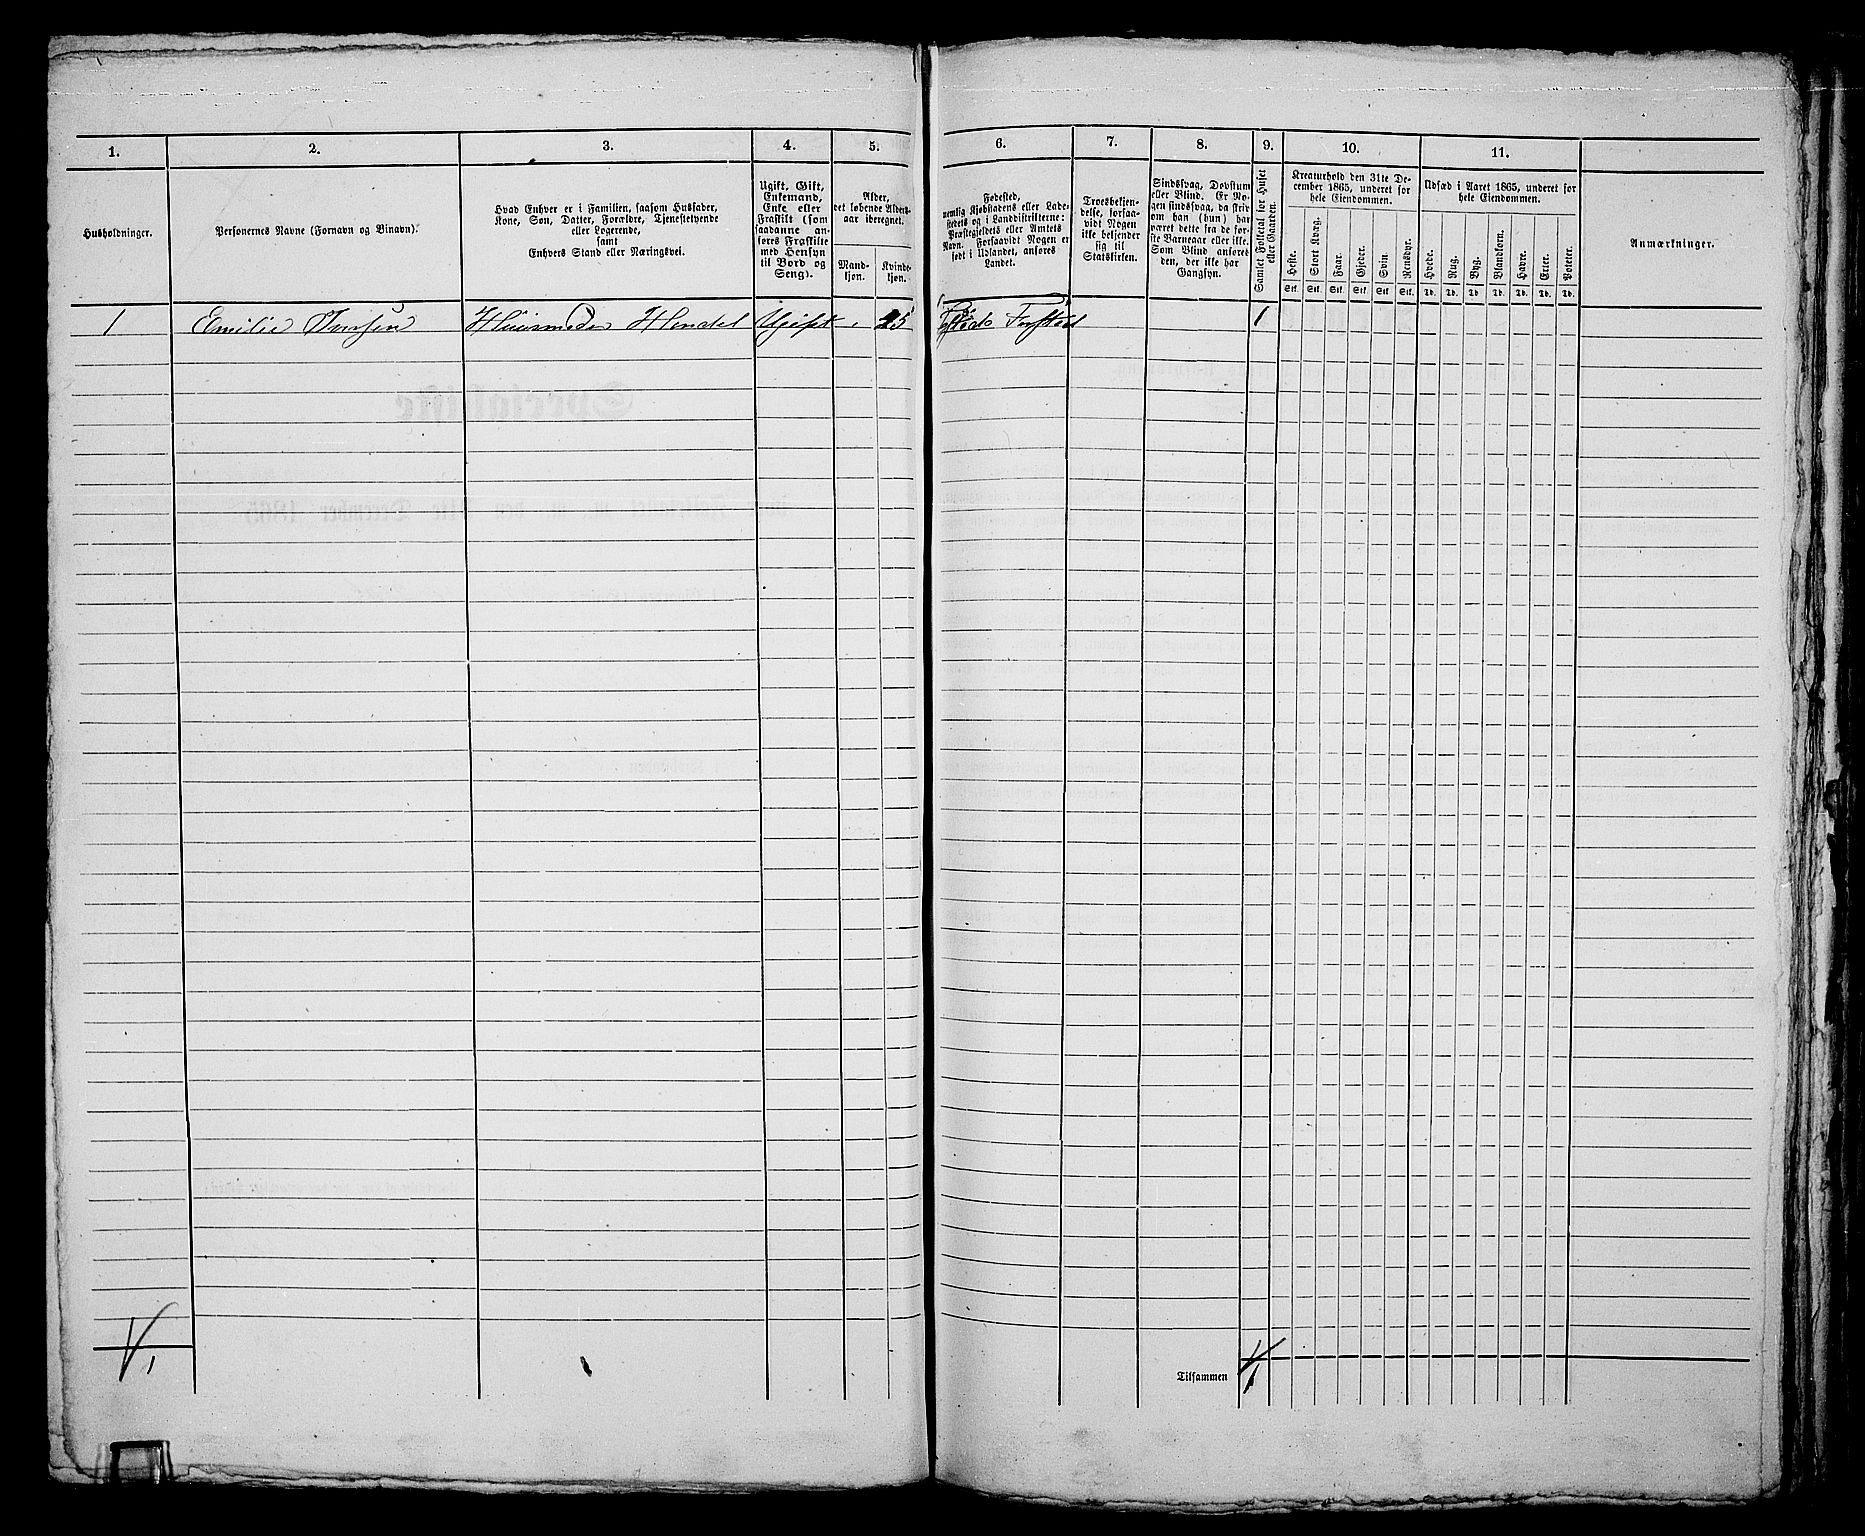 1.
2.
3.
4.
5.
6.
7.
8.
9.
10.
11.
Husholdninger.
Personernes Navne (Fornavn og Binavn).
Hvad Enhver er i Familien, saasom Husfader,
Kone, Søn, Datter, Forældre, Tjenestetyende
eller Logerende,
samt
Enhvers Stand eller Næringsvei.
Ugift, Gift,
Enkemand,
Enke eller
Fraskilt (som
saadanne an-
føres Fraskilte
med Hensyn
til Bord og
Seng).
Alder,
det løbende Alders-
aar iberegnet.
Mand-
kjøn.
Kvinde-
kjøn.
Fødested,
nemlig Kjøbstadens eller Lade-
stedets og i Landdistrikterne:
Præstegjeldets eller Amtets
Navn. Forsaavidt Nogen er
født i Udlandet, anføres
Landet.
Troesbekjen-
delse, forsaa-
vidt Nogen
ikke bekjender
sig til
Statskirken.
Sindssvag, Døvstum
eller Blind. Er No-
gen sindssvag, da skriv
om han (hun) har
været dette fra de før-
ste Barneaar eller ikke.
Som Blind anføres
den, der ikke har
Gangsyn.
Samlet Folketal for Huset
eller Gaarden.
Kreaturhold den 31te De-
cember 1865, underet for
hele Eiendommen.
Heste.
Stort Kvæg.
Faar.
Gjeder.
Svin.
Rensdyr.
Stk. Stk. Stk. Stk. Stk. Stk.
Udsæd i Aaret 1865, underet for
hele Eiendommen.
Hvede.
Rug.
Byg.
Blandkorn.
Havre.
Erter.
Poteter.
Td. Td. Td. Td. Td. Td. Td.
Anmærkninger.
1 Emilie Husmoder Handel Ugift 25 1
Tilsammen 1